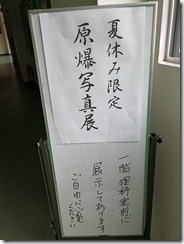 夏休み限定
原爆写真展
一階理科室前に
展示してあります
ご自由にご覧
ください